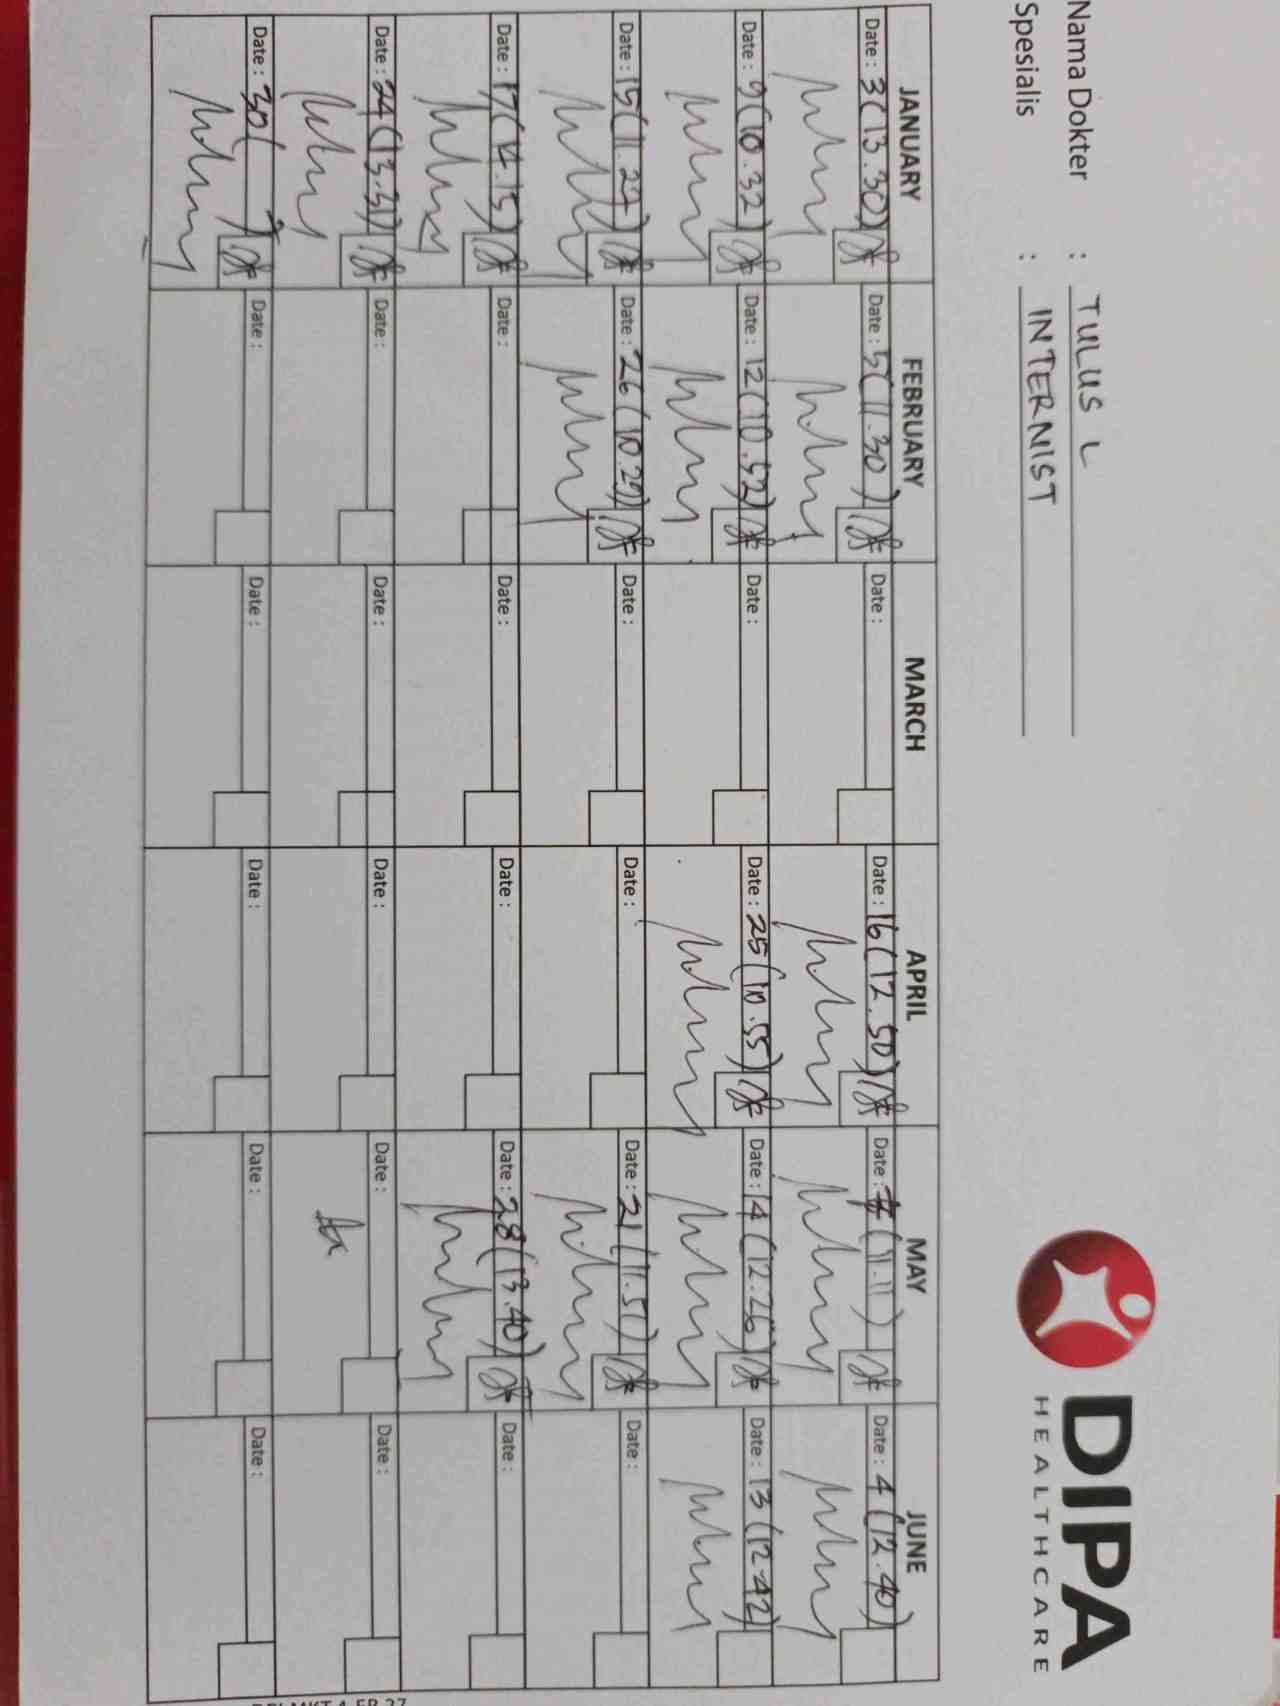 Nama Dokter : TULUS L
Spesialis : INTERNIST
DIPA
HEALTHCARE
JANUARY FEBRUARY MARCH APRIL MAY JUNE
Date : 3 (13.30) Date : 5 (11.30) Date : Date : 16 (12.50) Date : (11.11) Date : 4 (12.40)
Date : 9 (10.32) Date : 12 (10.52) Date : Date : 25 (10.55) Date : 14 (12.26) Date : 13 (12.42)
Date : 15 (11.27) Date : 26 (10.29) Date : Date : Date : 21 (11.51) Date :
Date : 17 (4.15) Date : Date : Date : Date : 28 (13.40) Date :
Date : 24 (13.31) Date : Date : Date : Date : Date :
Date : 30 ( ) Date : Date : Date : Date : Date :